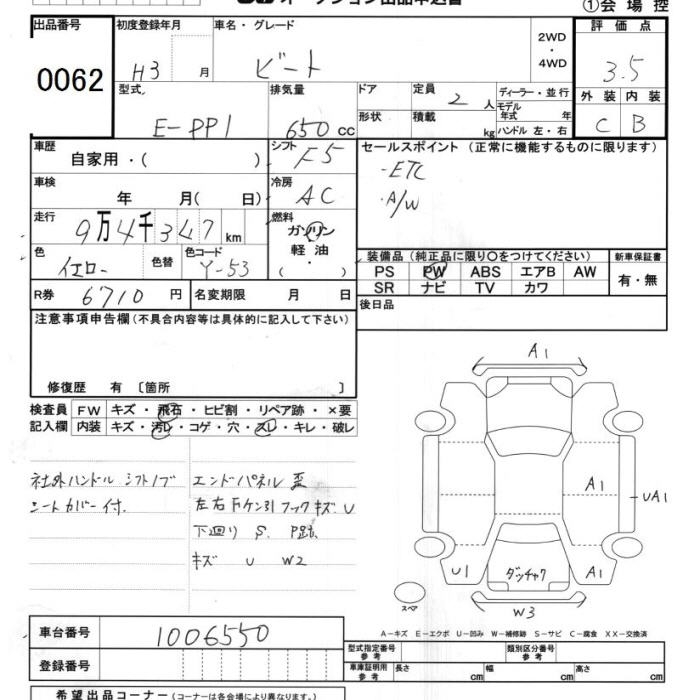 ①会場控
出品番号 初度登録年月 車名・グレード 評価点
0062 H3 月 ビート 2WD・4WD 3.5
型式 E-PP1 排気量 650 cc ドア 定員 2 人 ディーラー・並行 外装 内装
形状 積載 kg モデル年式 年 ハンドル 左・右 C B
車歴 自家用・( ) シフト F5 セールスポイント (正常に機能するものに限ります)
・ETC
・A/W
車検 年 月( 日) 冷房 AC
走行 9万4千347km 燃料 ガソリン 軽油 ( ・ )
色 イエロー 色替 色コード Y-53
装備品 (純正品に限り〇をつけてください) 新車保証書
PS PW ABS エアB AW 有・無
SR ナビ TV カワ
R券 6710 円 名変期限 月 日 後日品
注意事項申告欄 (不具合内容等は具体的に記入して下さい)
修復歴 有 〔箇所 〕
検査員 FW キズ・飛石・ヒビ割・リペア跡・×要
記入欄 内装 キズ・汚レ・コゲ・穴・スレ・キレ・破レ
社外ハンドル シフトノブ
シートカバー付.
エンドパネル 歪
左右Fケン引フックキズ U
下廻り S. P跡.
キズ U W2
A1
A1
UA1
U1 ダッチャク A1
スペア W3
A-キズ E-エクボ U-凹み W-補修跡 S-サビ C-腐食 XX-交換済
車台番号 1006550
型式指定番号 参考 類別区分番号 参考
登録番号 車庫証明用 参考 長さ cm 幅 cm 高さ cm
希望出品コーナー (コーナーは各会場により異なります。)